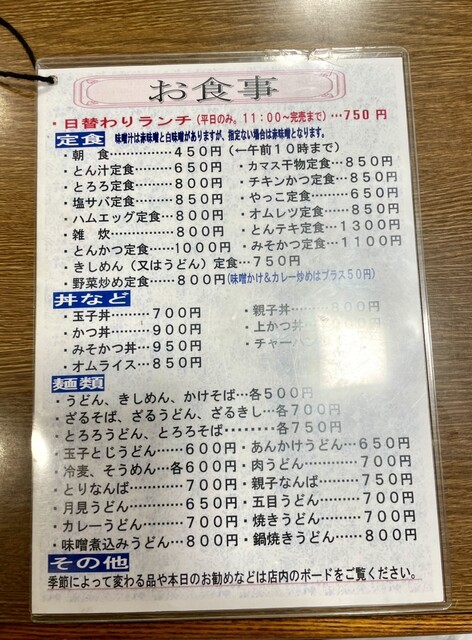 お食事
・日替わりランチ(平日のみ。11:00～完売まで)…750円
定食 味噌汁は赤味噌と白味噌がありますが、指定ない場合は赤味噌となります。
・朝 食……………450円(←午前10時まで)
・とん汁定食………650円 ・カマス干物定食…850円
・とろろ定食………800円 ・チキンかつ定食…850円
・塩サバ定食………850円 ・やっこ定食………650円
・ハムエッグ定食…800円 ・オムレツ定食……850円
・雑 炊……………800円 ・とんテキ定食…1300円
・とんかつ定食……1000円 ・みそかつ定食…1100円
・きしめん(又はうどん)定食…750円
・野菜炒め定食……800円(味噌かけ&カレー炒めはプラス50円)
丼など
・玉子丼………700円 ・親子丼
・かつ丼………900円 ・上かつ丼
・みそかつ丼…950円 ・チャーハン
・オムライス…850円
麺類
・うどん、きしめん、かけそば…各500円
・ざるそば、ざるうどん、ざるきし…各700円
・とろろうどん、とろろそば………各750円
・玉子とじうどん……600円 ・あんかけうどん…650円
・冷麦、そうめん…各600円 ・肉うどん…………700円
・とりなんば…………700円 ・親子なんば………750円
・月見うどん…………650円 ・五目うどん………700円
・カレーうどん………700円 ・焼きうどん………700円
・味噌煮込みうどん…800円 ・鍋焼きうどん……800円
その他
季節によって変わる品や本日のお勧めなどは店内のボードをご覧ください。